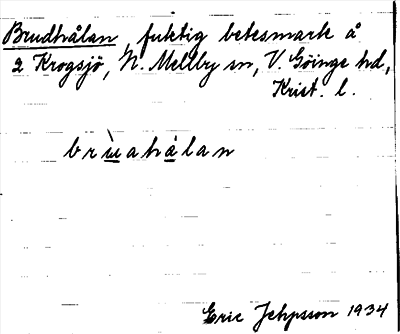 Brudhålan, fuktig betesmark å
2 Krogsjö, N. Mellby sn, V. Göinge hd,
Krist. l.
brùahålan
Eric Jehpsson 1934